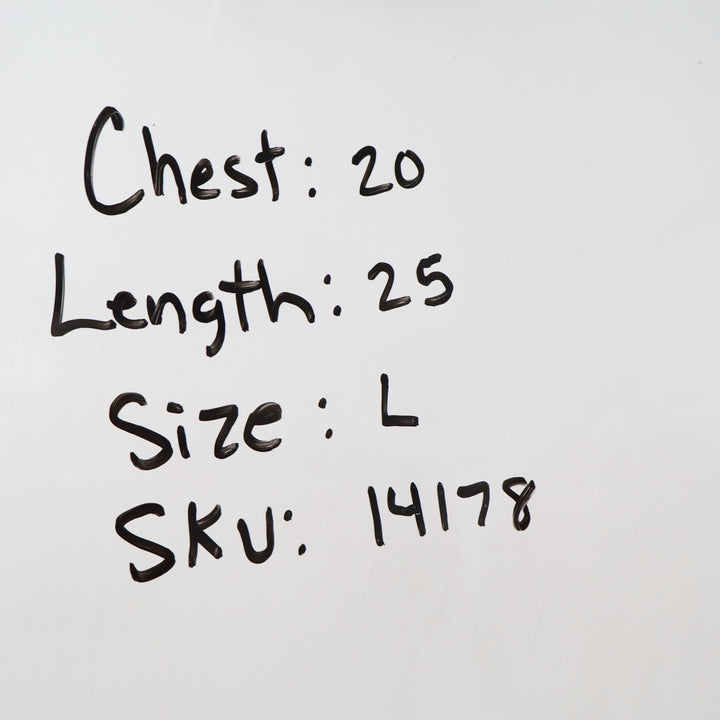 Chest: 20
Length: 25
Size: L
SKU: 14178